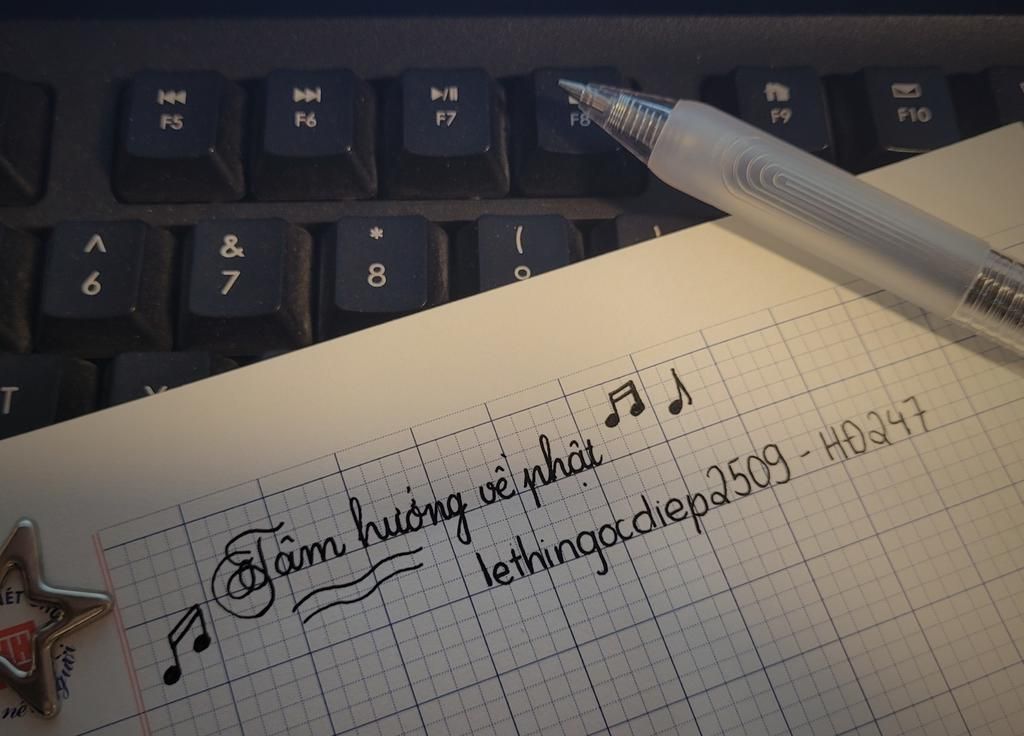 F5 F6 F7 F8 F9 F10
^ & * (
6 7 8 9
T Y
Tâm hướng về phật
lethingocdiep2509 - HĐ247